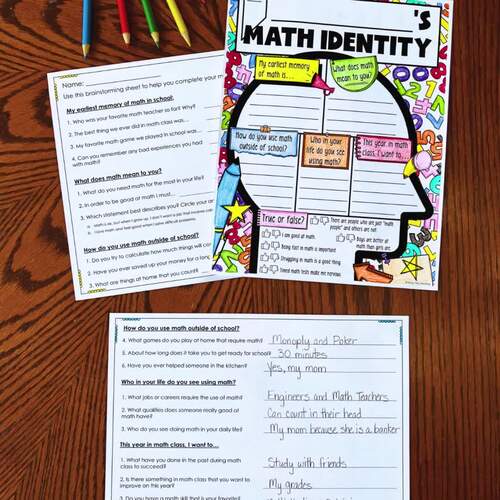 'S
MATH IDENTITY
My earliest memory
of math is...
What does math
mean to you?
How do you use math
outside of school?
Who in your
life do you see
using math?
This year in math
class, I want to...
True or false?
I am good at math.
Being fast in math is important.
Struggling in math is a good thing
Timed math tests make me nervous
There are people who are just "math
people" and others are not.
Boys are better at
math than girls are.
Name:
Use this brainstorming sheet to help you complete your m
My earliest memory of math in school:
1. Who was your favorite math teacher so far? Why?
2. The best thing we ever did in math class was...
3. My favorite math game we played in school was
4. Can you remember any bad experiences you had
with math?
What does math mean to you?
1. What do you need math for the most in your life?
2. In order to be good at math I must...
3. Which statement best describes you? Circle your an
How do you use math outside of school?
1. Do you try to calculate how much things will co
2. Have you ever saved up your money for a long
3. What are things at home that you count?
How do you use math outside of school?
4. What games do you play at home that require math? Monoply and Poker
5. About how long does it take you to get ready for school? 30 minutes
6. Have you ever helped someone in the kitchen? Yes, my mom
Who in your life do you see using math?
1. What jobs or careers require the use of math? Engineers and Math Teachers
2. What qualities does someone really good at
math have? Can count in their head
3. Who do you see doing math in your daily life? My mom because she is a banker
This year in math class, I want to...
1. What have you done in the past during math
class to succeed? Study with friends
2. Is there something in math class that you want to
improve on this year? My grades
3. Do you have a math skill that is your favorite?